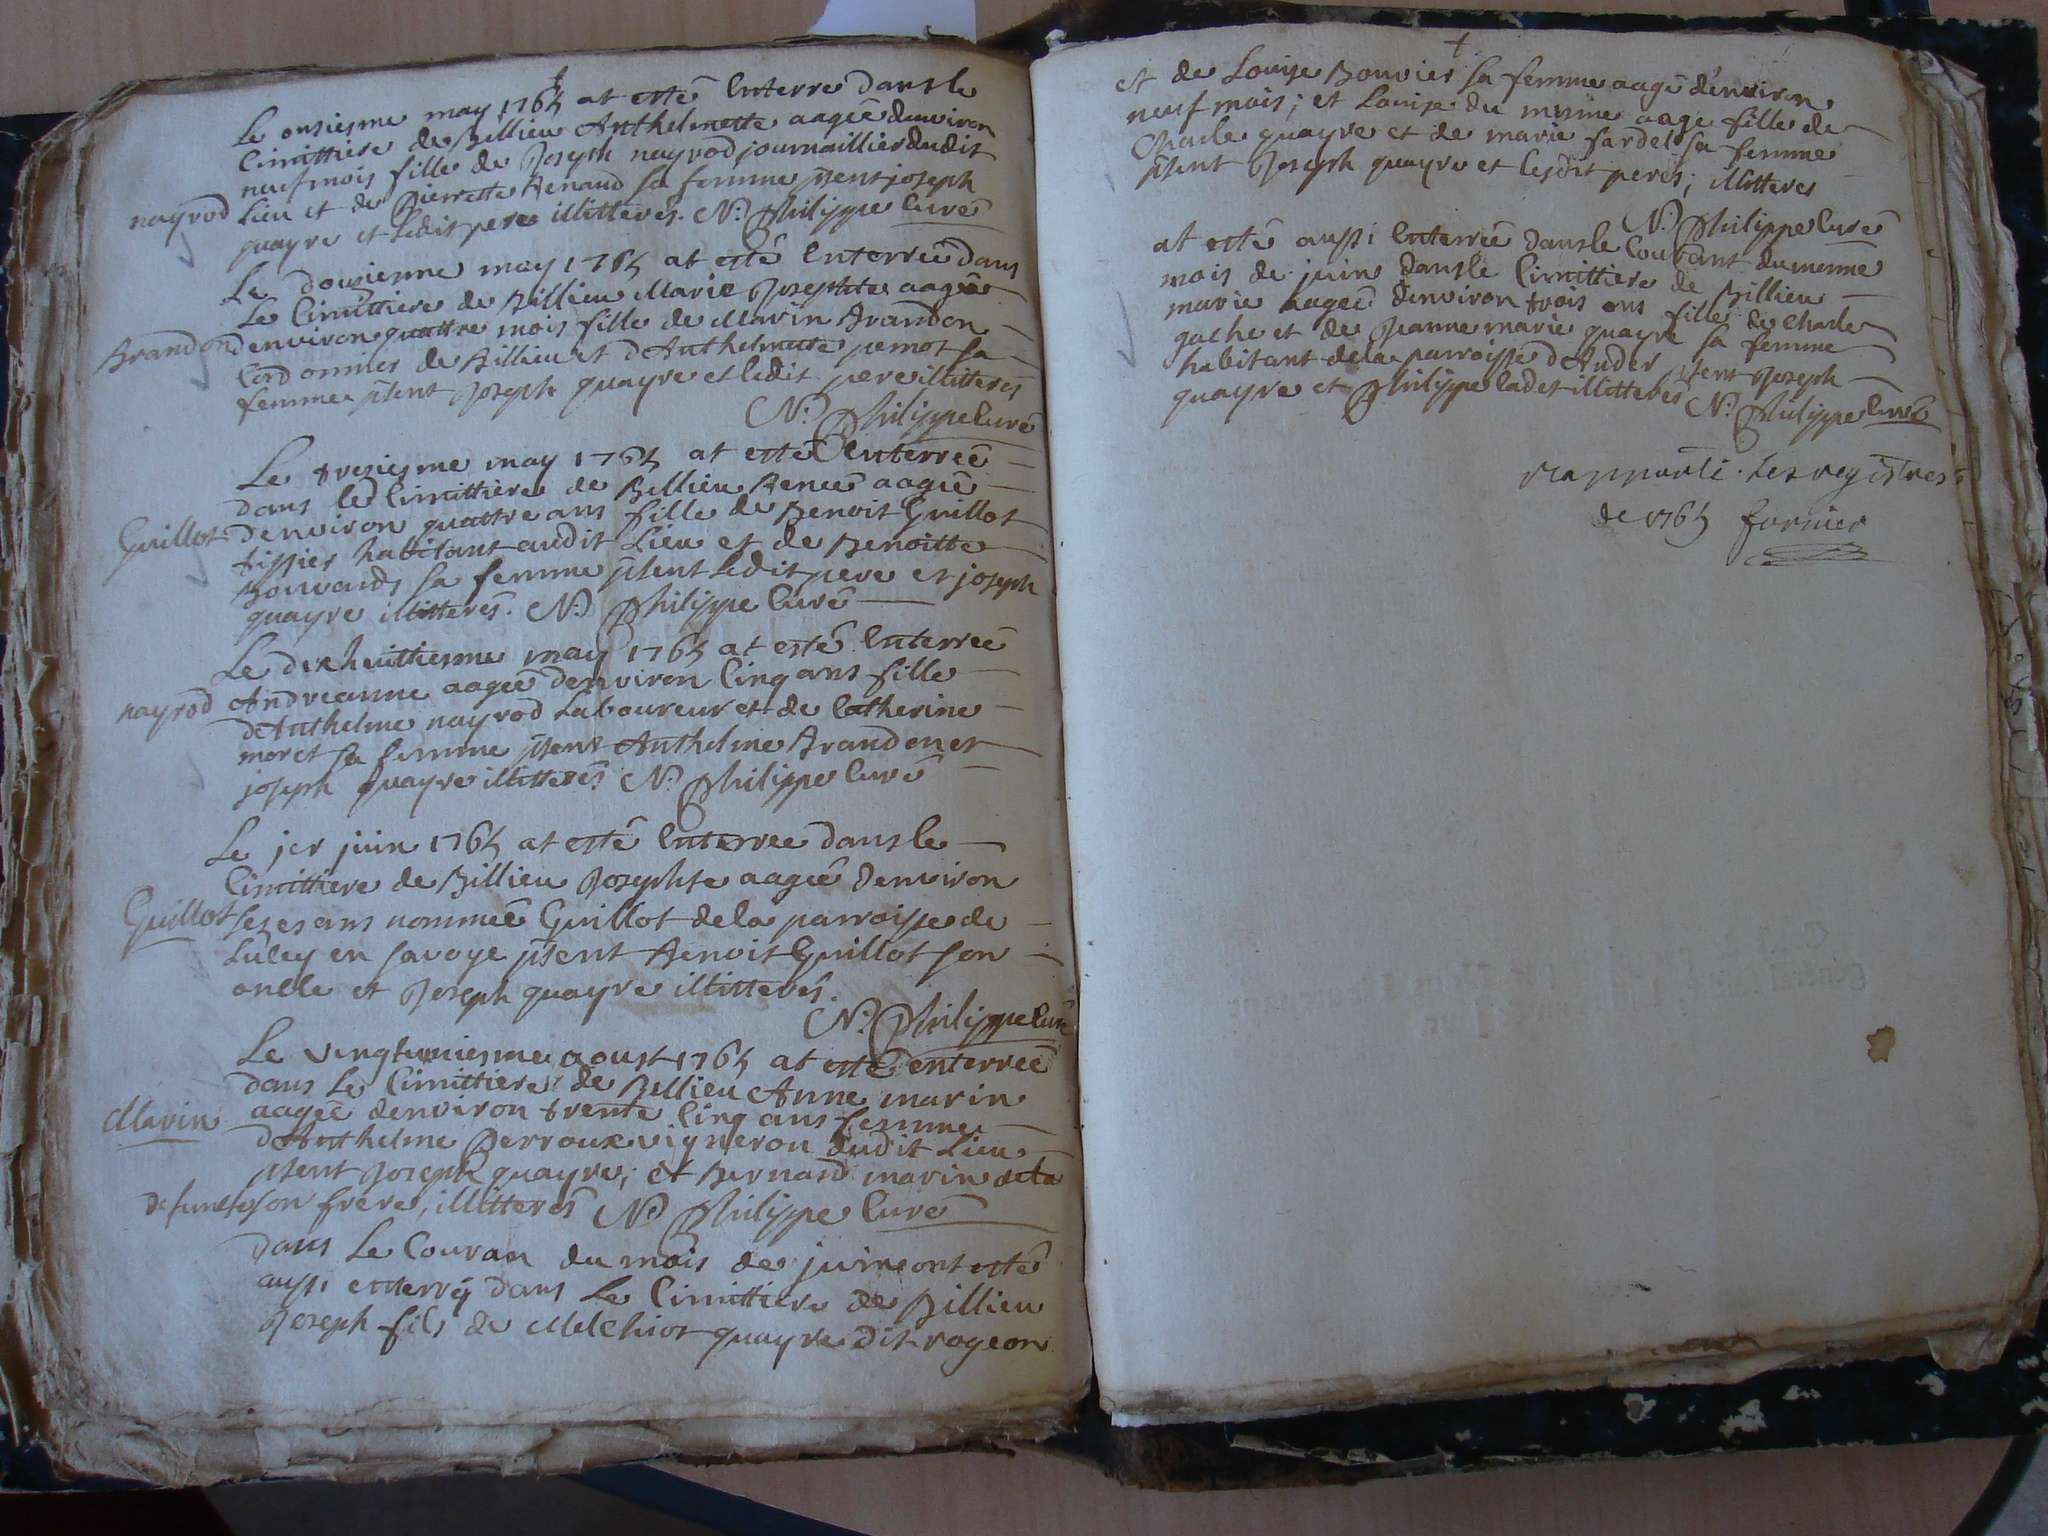 Le onsiesme may 1765 at esté Enterre dans le
Cimittiere de Billieu Anthelmette aagée denviron
neuf mois fille de Joseph nayrod journaillier dudit
nayrod Lieu et de Pierrette Renaud sa femme pñent joseph
quayre et ledit pere illitterés. N. Philippe Curé
Le dousiesme may 1765 at esté Enterrée dans
Le Cimittiere de Billieu Marie Josephte aagée
Brandon denviron quattre mois fille de Marin Brandon
Cordonnier de Billieu et d'Anthelmette pemot sa
femme pñent Joseph quayre et ledit pere illitterés
N. Philippe Curé
Le tresiesme may 1765 at esté Enterrée
dans le Cimittiere de Billieu Renée aagée
Guillot denviron quattre ans fille de Benoit Guillot
tissier habitant audit Lieu et de Benoitte
Bouvards sa femme pñent ledit pere et joseph
quayre illitterés. N. Philippe Curé
Le dix huitiesme may 1765 at esté Enterrée
nayrod Andreanne aagée denviron Cinq ans fille
d'Anthelme nayrod Laboureur et de Catherine
moret sa femme pñent Anthelme Brandon et
joseph quayre illitterés N. Philippe Curé
Le jer juin 1765 at esté Enterree dans le
Cimittiere de Billieu Josephte aagée denviron
Guillot sezes ans nommée Guillot de la parroisse de
Lucey en savoye pñent Benoit Guillot son
oncle et Joseph quayre illitterés.
N. Philippe Curé
Le vingtuniesme aoust 1765 at esté enterreé
dans Le Cimittiere de Billieu Anne marin
Marin aagée denviron trente Cinq ans femme
d'Anthelme Perroux vigneron dudit Lieu
pñent Joseph quayre; et Bernard marin de ta
defuncte son frere, illitterés N. Philippe Curé
dans Le Couran du mois de juin ont esté
aussi enterrý dans Le Cimittiere de Billieu
Joseph fils de Melchior quayre dit rogeon
et de Louise Bouvier sa femme aagé d'environ
neuf mois; et Louise du mesme aage fille de
Charle quayre et de marie fardel sa femme
pñent Joseph quayre et lesdit peres; illitterés
N. Philippe Curé
at esté aussi Enterrée dans le Courant du mesme
mois de juin dans le Cimittiere de Billieu
marie aagée denviron trois ans fille de Charle
gache et de Jeanne marie quayre sa femme
habitant de la parroisse d'Ander pñent Joseph
quayre et Philippe Cadet illitterés N. Philippe Curé
Les registres
de 1765 fornier